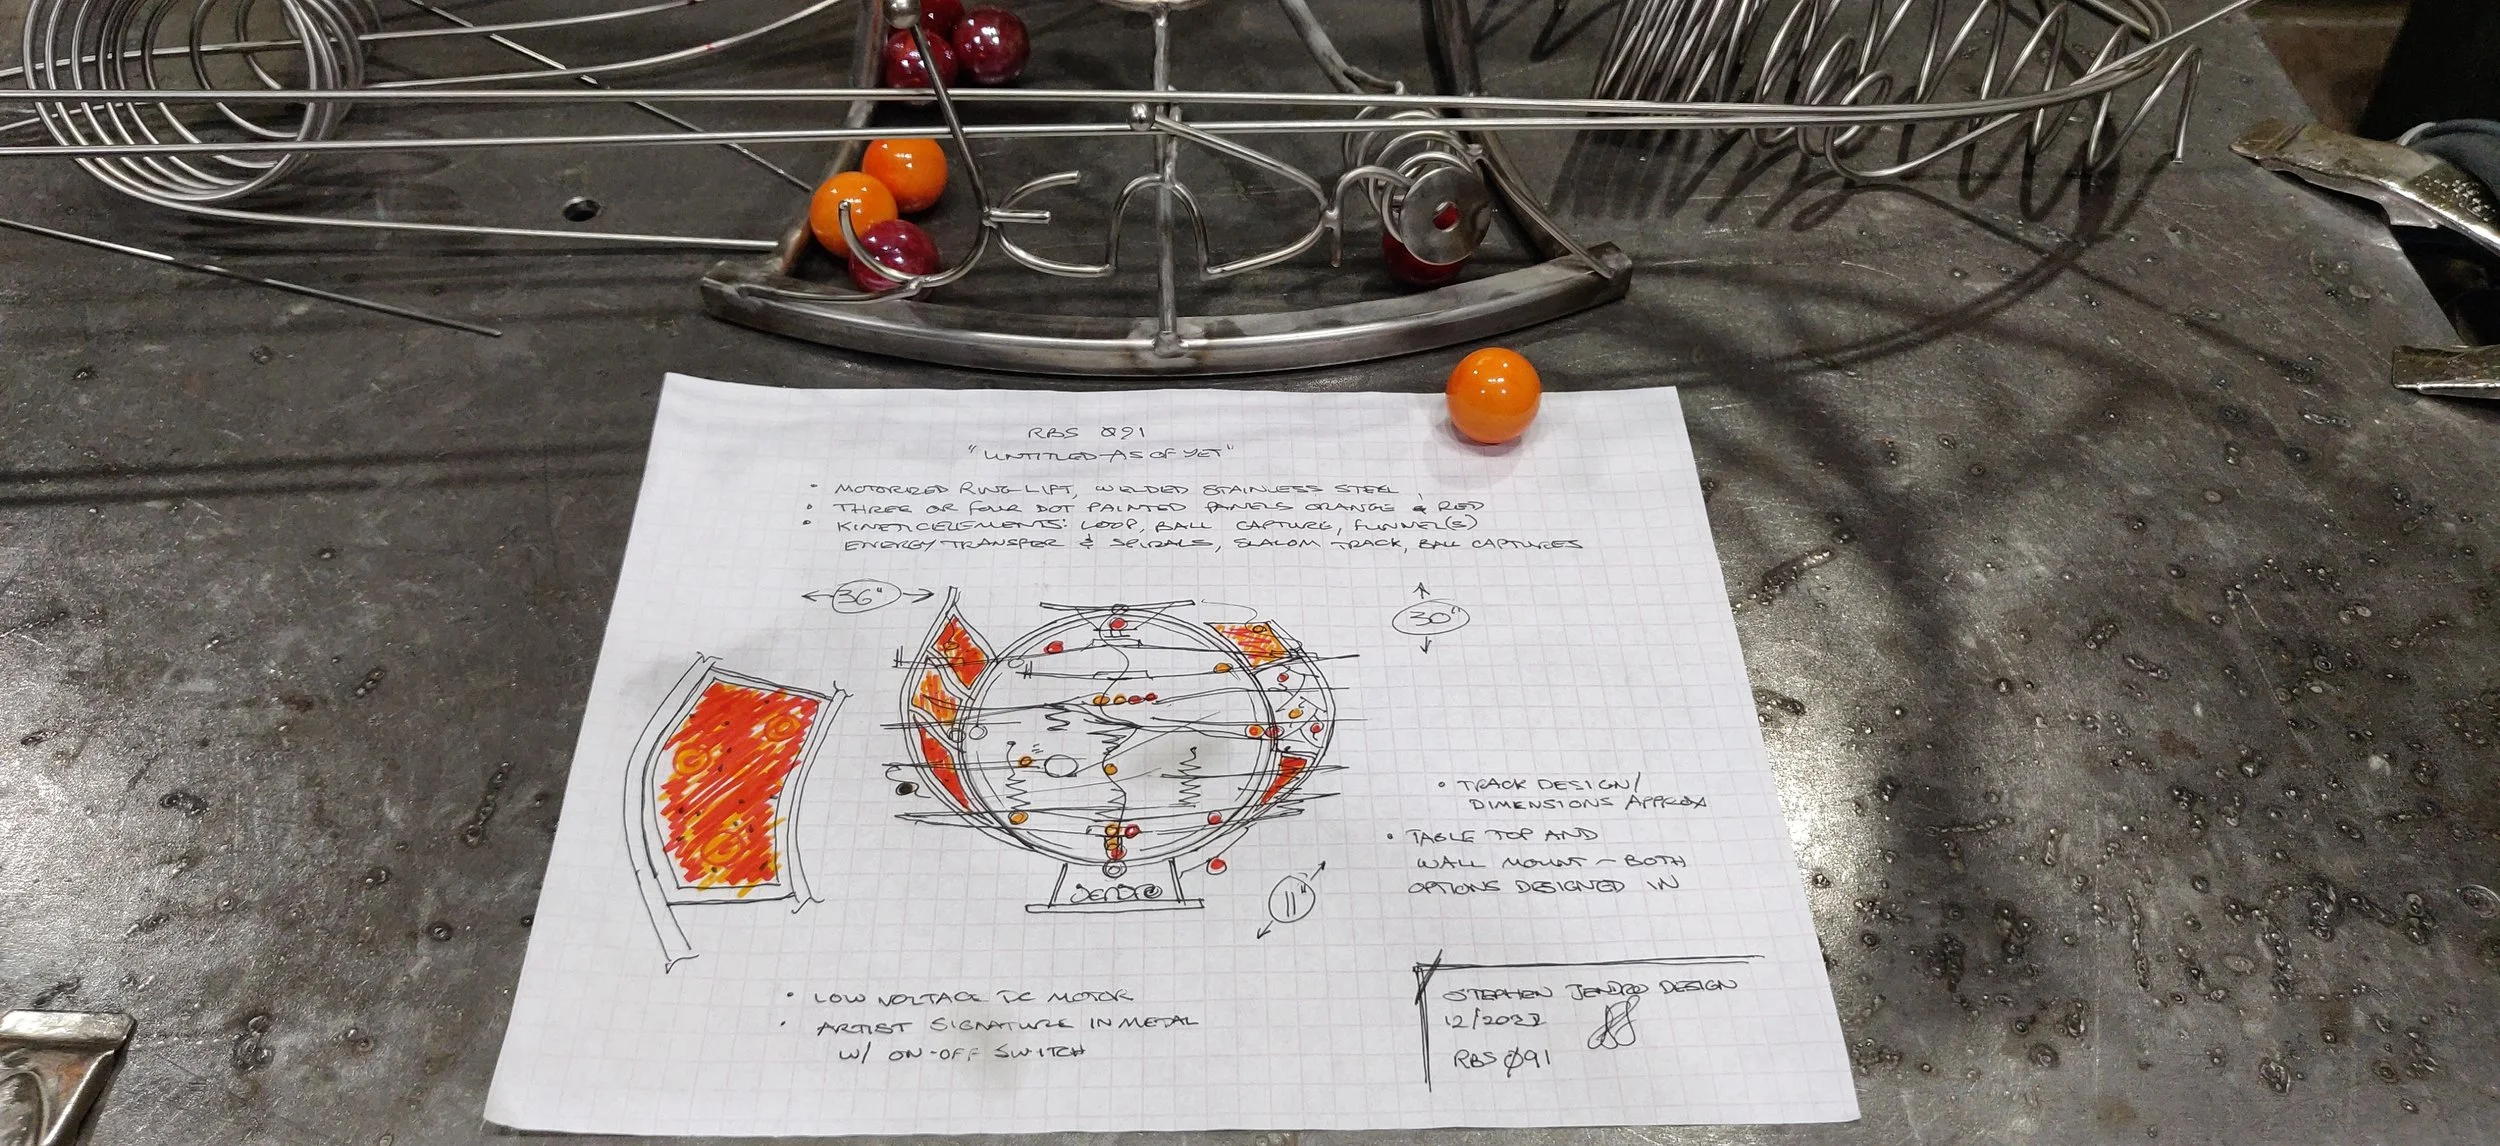 Jendro
RBS Ø91
"UNTITLED-AS OF YET"
• MOTORIZED RING LIFT, WELDED STAINLESS STEEL
• THREE OR FOUR DOT PAINTED PANELS ORANGE & RED
• KINETIC ELEMENTS: LOOP, BALL CAPTURE, FUNNEL(S)
ENERGY TRANSFER & SPIRALS, SLALOM TRACK, BALL CAPTURES
36"
30"
• TRACK DESIGN/
DIMENSIONS APPROX
• TABLE TOP AND
WALL MOUNT - BOTH
OPTIONS DESIGNED IN
11"
JENDRO
• LOW VOLTAGE DC MOTOR
• ARTIST SIGNATURE IN METAL
W/ ON-OFF SWITCH
STEPHEN JENDRO DESIGN
12/2022
RBS Ø91